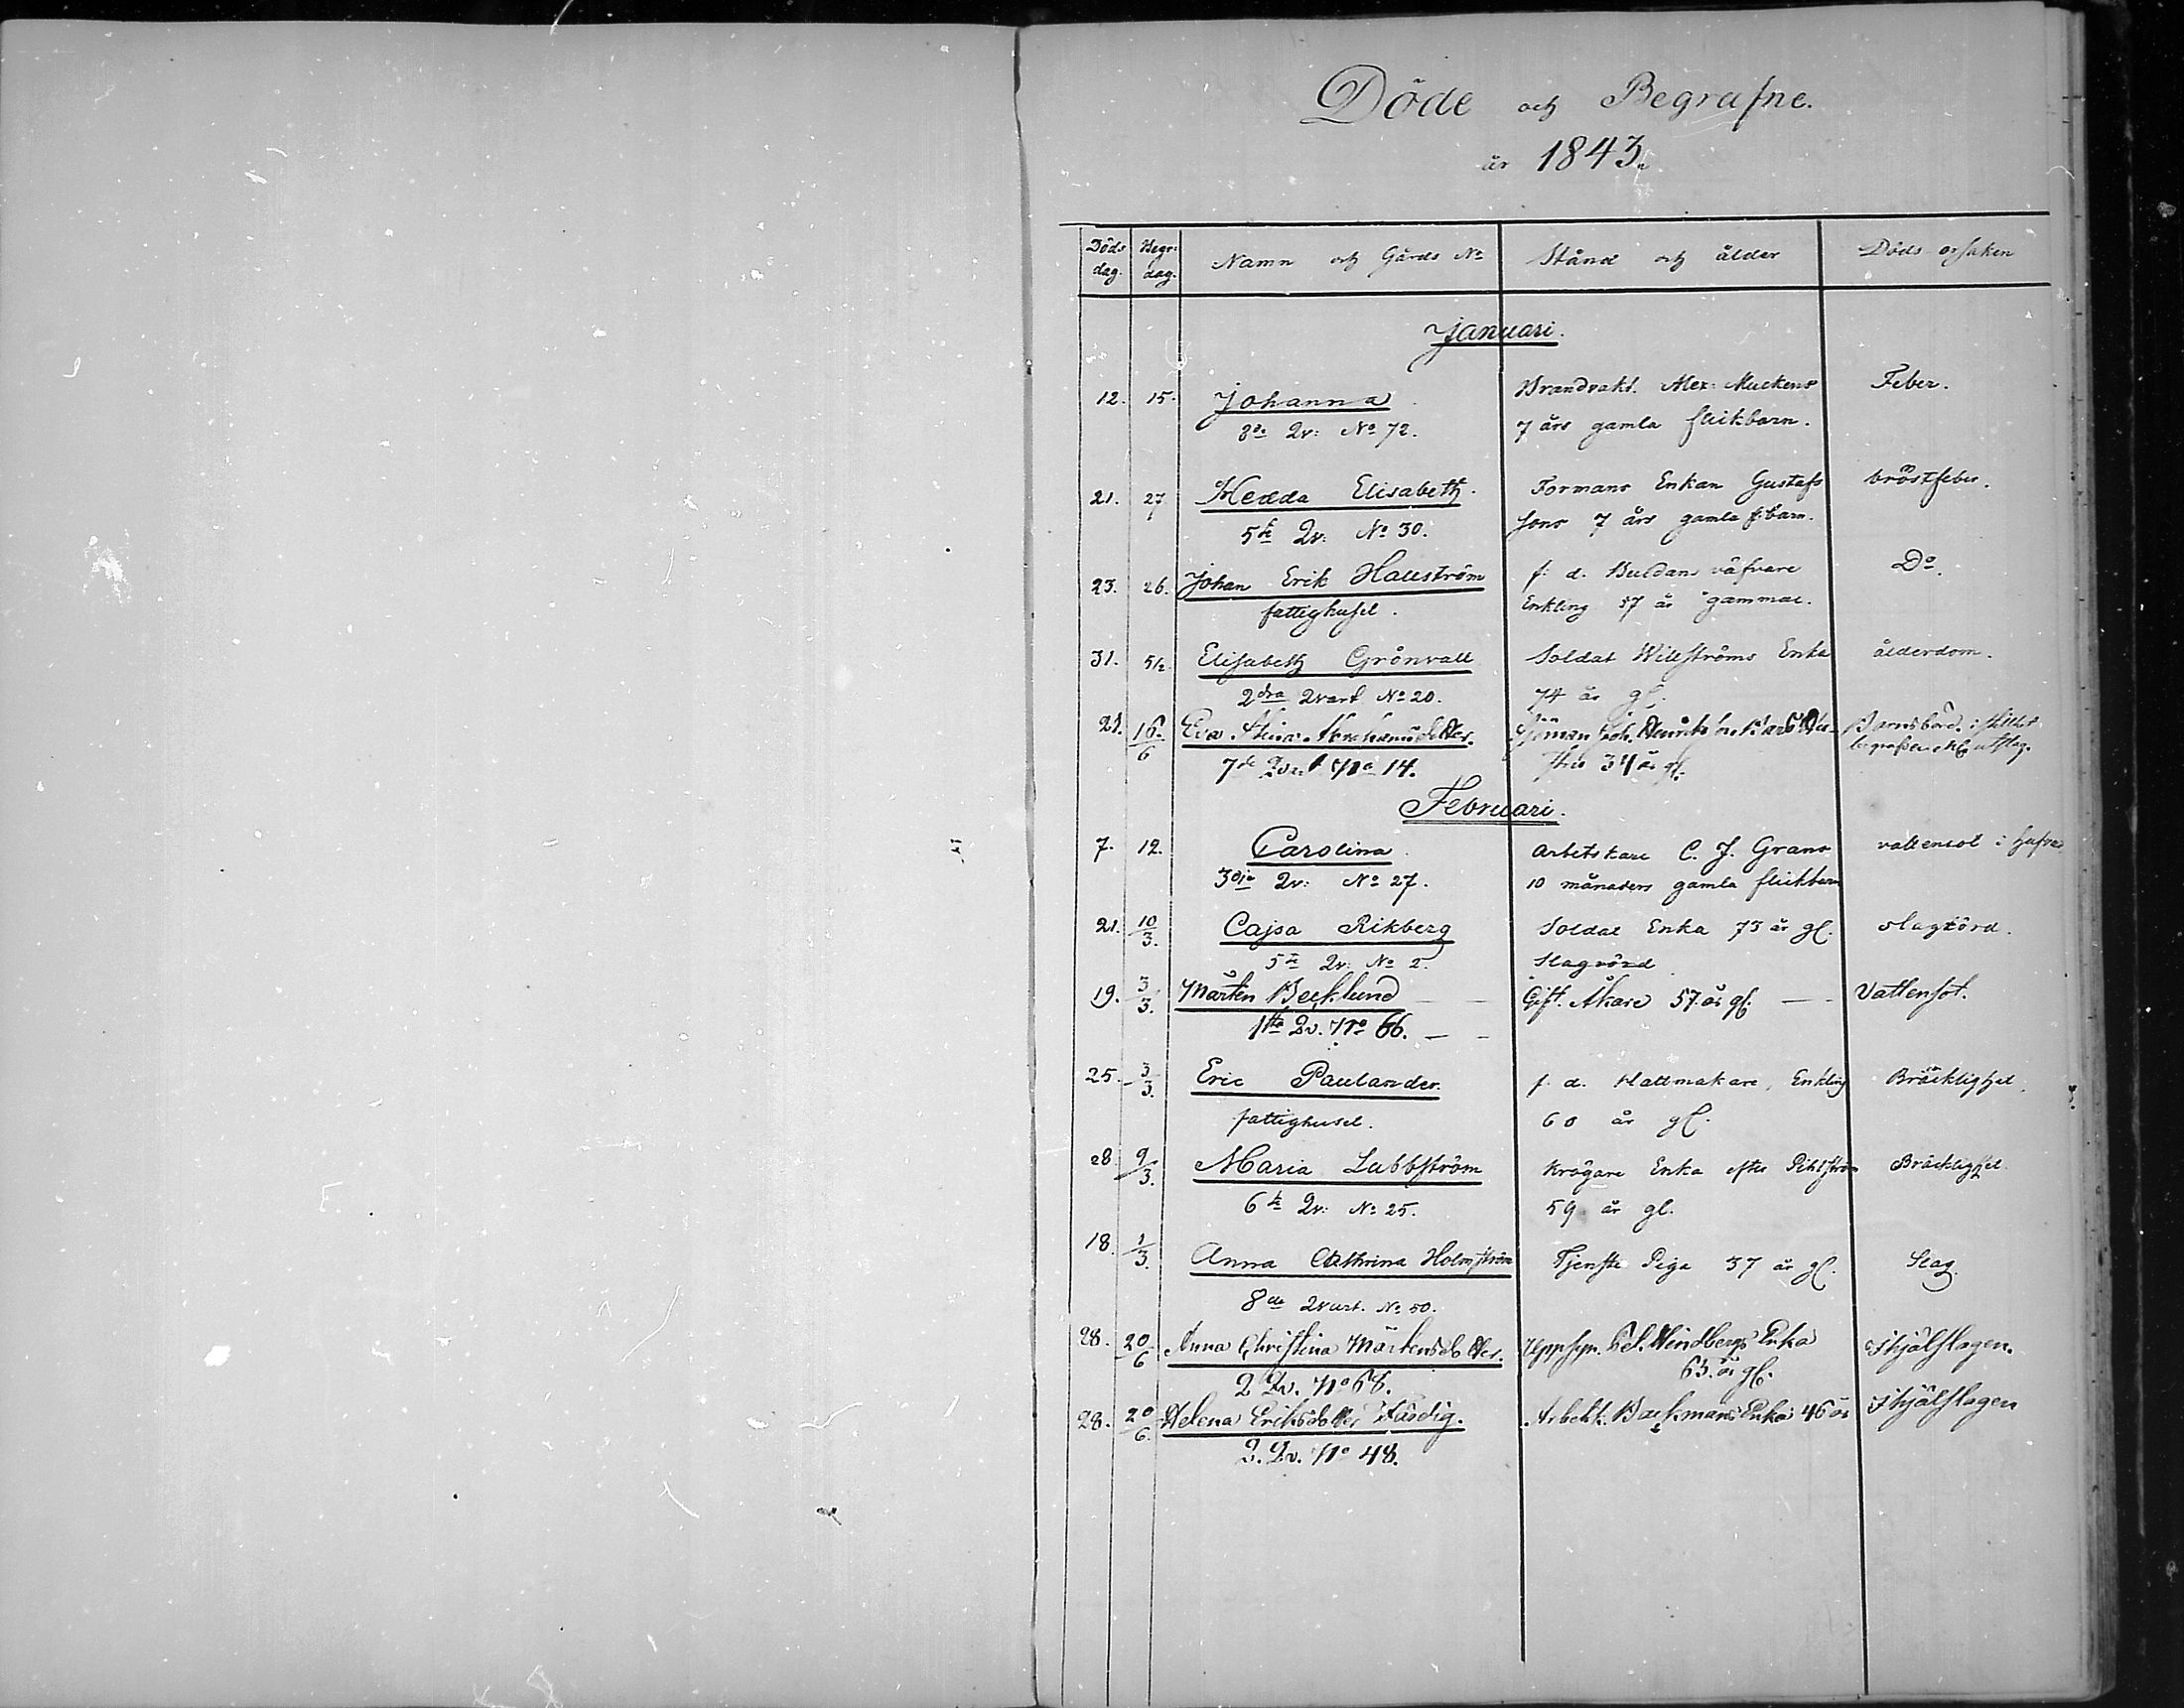 Döde och Begrafne.
år 1843.
Döds dag. Begr: dag. Namn och Gårds No Stånd och ålder Döds orsaken
Januari.
12. 15. Johanna Brandvakt. Alex: Muckens Feber.
3de Qv: No 72. 7 års gamla flickbarn.
21. 27 Hedda Elisabeth. Formans Enkan Gustafs bröstfeber.
5te Qv: No 30. sons 7 års gamla f:barn.
23. 26. Johan Erik Hallström f. d. Buldans väfvare Do.
fattighuset. Enkling 57 år gammal.
31. 5/2. Elisabeth Grönvall Soldat Willströms Enka ålderdom.
2dra Qvart No 20. 74 år gl.
21. 16/6 Eva Stina Sjöman Joh. Barnsbörd.
7de Qvart No 14. 34 år gl.
Februari.
7. 12. Carolina Arbetskarl C. J. Grans vattensot i hufvud
3dje Qv: No 27. 10 månaders gamla flickbarn
21. 10/3. Cajsa Rikberg Soldat Enka 73 år gl. slagrörd.
5te Qv: No 2. Slagrörd
19. 3/3. Mårten Becklund Gift. Åkare 57 år gl. Vattensot.
1sta Qv. No 66.
25. 3/3. Eric Paulander. f. d. Hattmakare, Enkling Bräcklighet.
fattighuset. 60 år gl.
28 9/3. Maria Lubbström Krögare Enka efter Pihlström Bräcklighet.
6te Qv: No 25. 59 år gl.
18. 1/3. Anna Cathrina Holmström Tjenste Piga 37 år gl. Slag.
8de Qvart. No 50.
28. 20/6 Anna Christina Mårtensdotter. Uppsyn. Lindbergs Enka Ihjälslagen.
2 Qv. No 68. 63 år gl.
28. 20/6. Helena Eriksdotter Färdig. Arbetk. Backmans Enka 46 år Ihjälslagen
2. Qv. No 48.